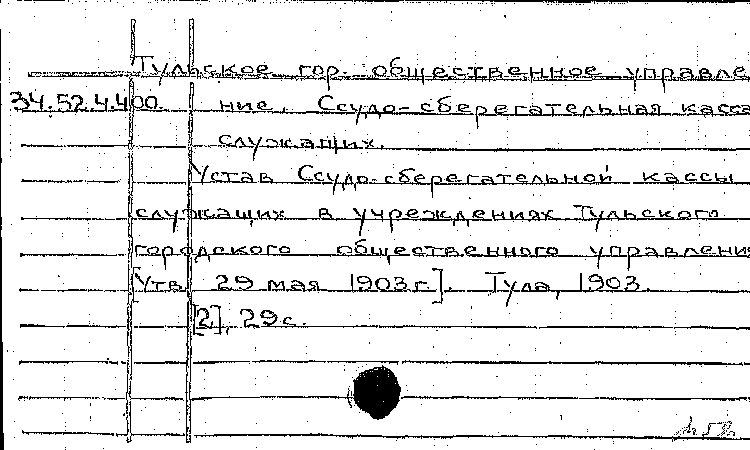 Тульское гор. общественное управле-
34.52.4.400. ние. Ссудо-сберегательная касса
служащих.
Устав Ссудо-сберегательной кассы
служащих в учреждениях Тульского
городского общественного управления
[Утв. 29 мая 1903 г.]. Тула, 1903.
[2], 29 с.